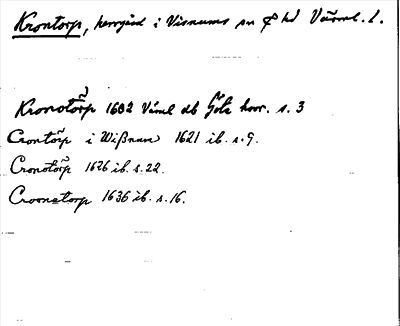 Krontorp, herrgård i Visnums sn & hd Värml. l.
Kronotõrp 1602 Värml db Göta hovr. s. 3
Crontõrp i Wißnum 1621 ib. s. 9.
Cronotõrp 1626 ib. s. 22.
Croonetorp 1636 ib. s. 16.